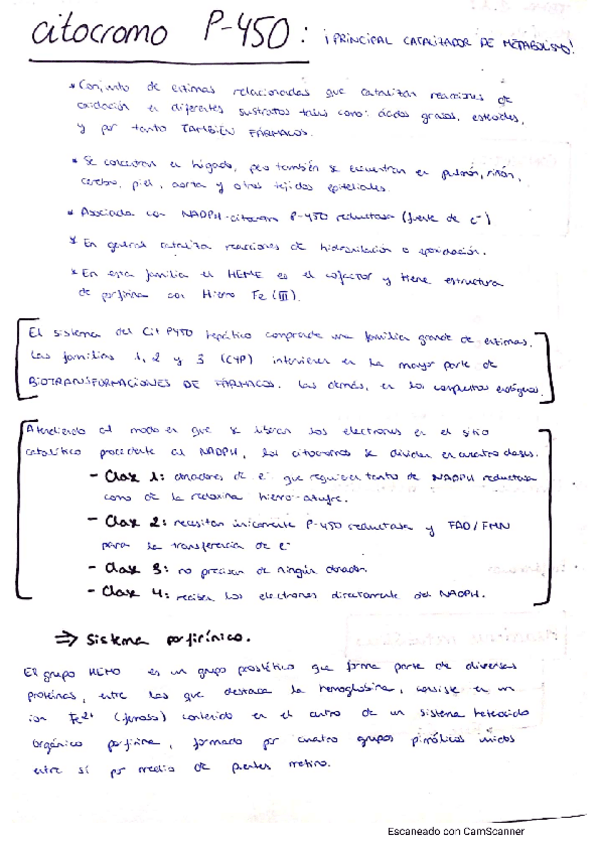 citocromo P-450: ¡PRINCIPAL CATALITADOR DE METABOLISMO!
* Conjunto de enzimas relacionadas que catalitan reacciones de
oxidación en diferentes sustratos tales como: ácidos grasos, esteroides,
y por tanto TAMBIÉN FÁRMACOS.
* Se concentran en hígado, pero también se encuentran en pulmón, riñón,
cerebro, piel, aorta y otros tejidos epiteliales.
* Asociada con NADPH-citocromo P-450 reductasa (fuente de e-)
* En general cataliza reacciones de hidroxilación o epoxidación.
* En esta familia el HEME es el cofactor y tiene estructura
de porfirina con Hierro Fe (III).
El sistema del Cit P450 hepático comprende una familia grande de enzimas.
Las familias 1, 2 y 3 (CYP) intervienen en la mayor parte de
BIOTRANSFORMACIONES DE FÁRMACOS. Las demás, en los compuestos endógenos.
Atendiendo al modo en que se liberan los electrones en el sitio
catalítico procedente del NADPH, los citocromos se dividen en cuatro clases.
- Clase 1: donadores de e- que requieren tanto de NADPH reductasa
como de la redoxina hierro-azufre.
- Clase 2: necesitan únicamente P-450 reductasa y FAD/FMN
para la transferencia de e-
- Clase 3: no precisan de ningún donador.
- Clase 4: reciben los electrones directamente del NADPH.
⇒ Sistema porfirínico.
El grupo HEMO es un grupo prostético que forma parte de diversas
proteínas, entre las que destaca la hemoglobina, consiste en un
ion Fe2+ (ferroso) contenido en el centro de un sistema heterociclo
orgánico porfirina, formado por cuatro grupos pirrólicos unidos
entre sí por medio de puentes metino.
Escaneado con CamScanner